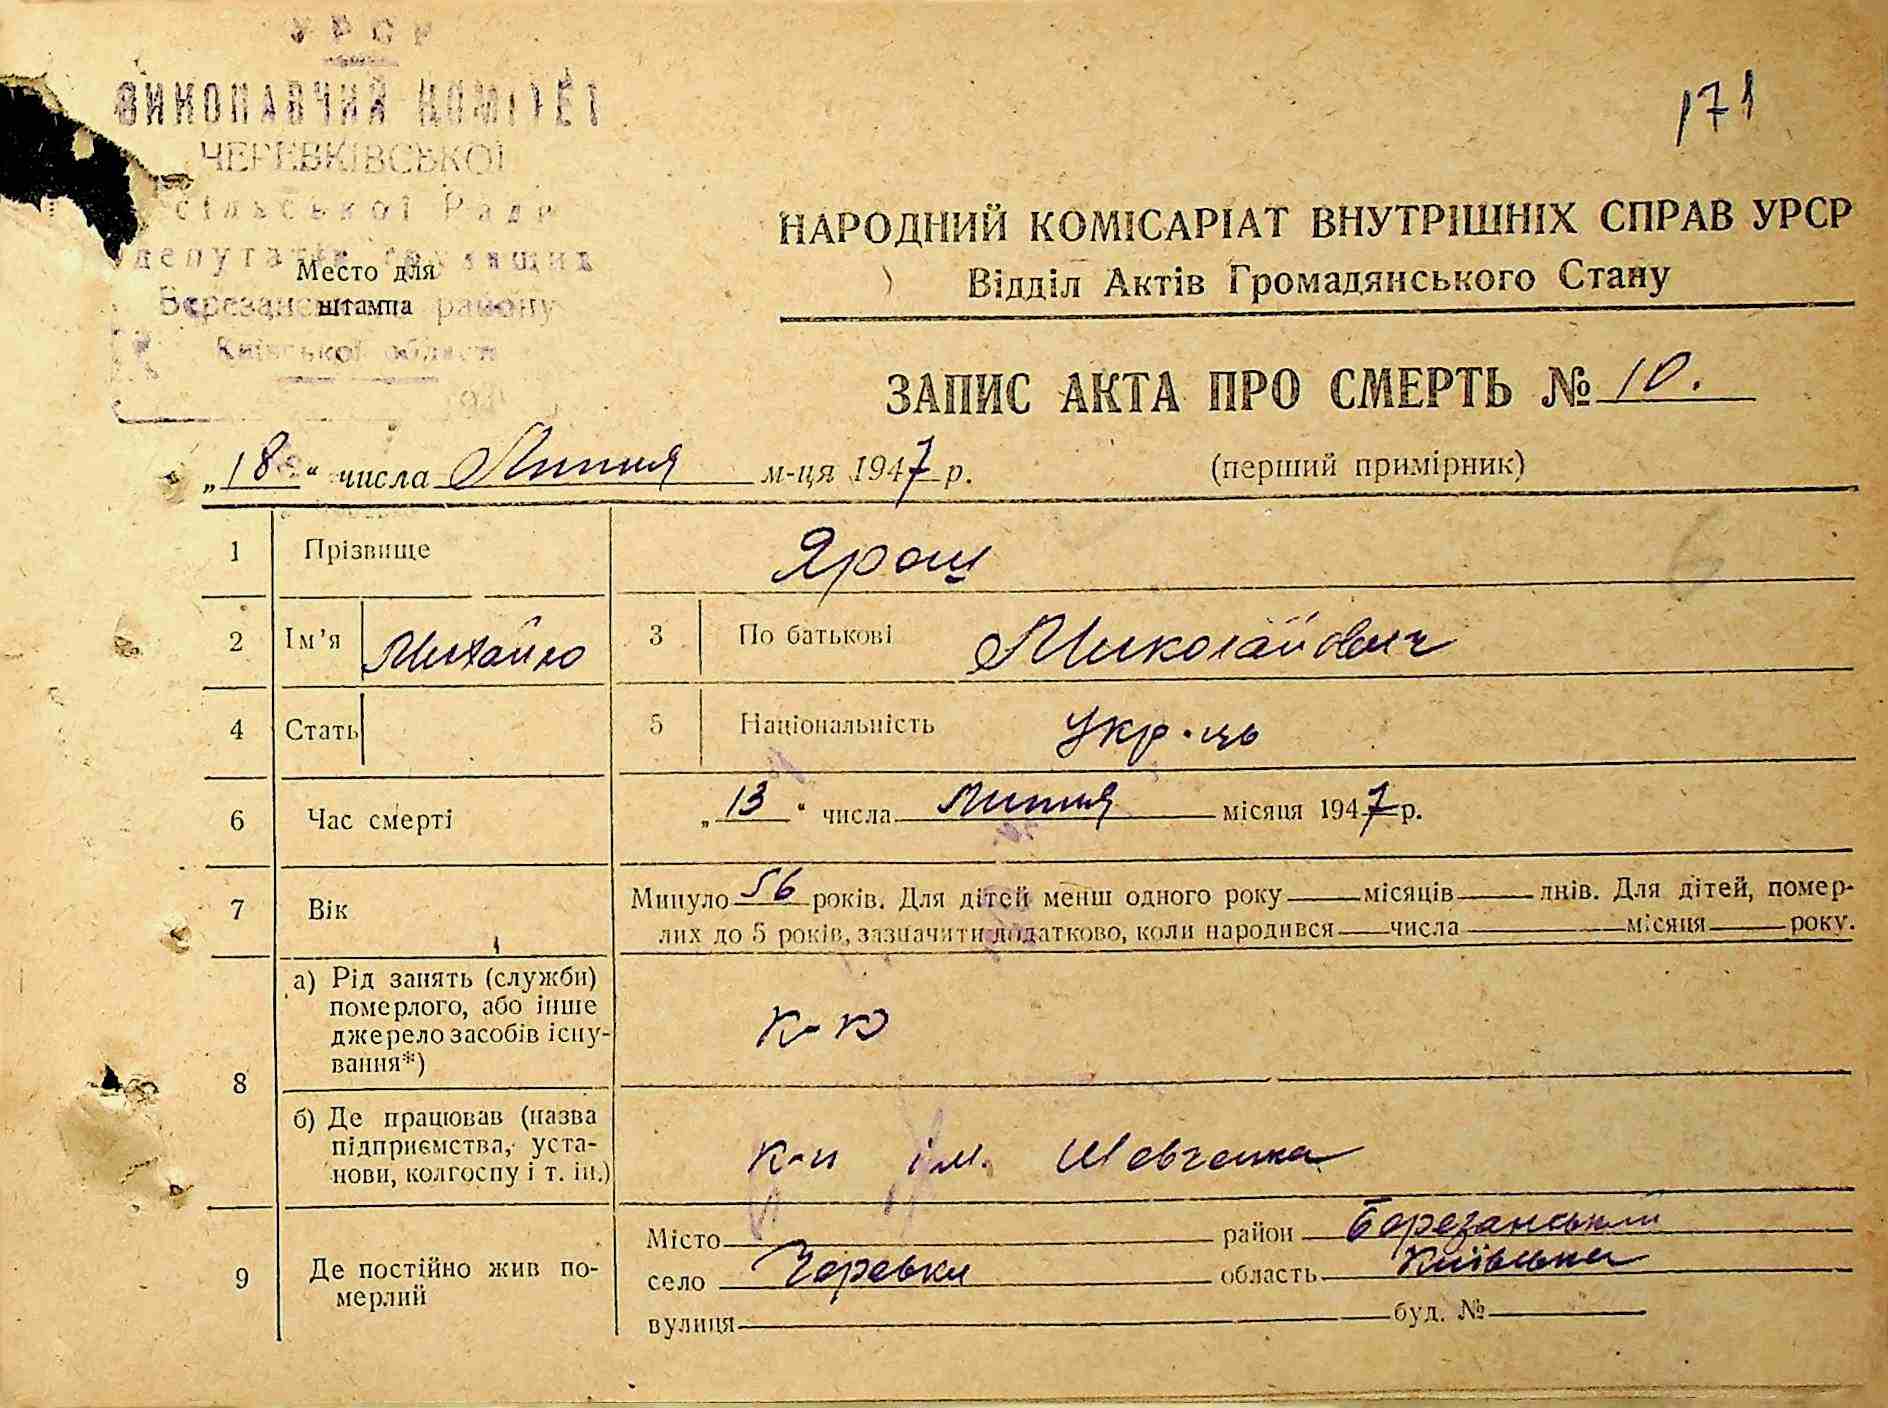 УРСР
ВИКОНАВЧИЙ КОМІТЕТ
ЧЕРЕВКІВСЬКОЇ
сільської Ради
депутатів трудящих
Березанського району
Київської області
Место для
штампа
171
НАРОДНИЙ КОМІСАРІАТ ВНУТРІШНІХ СПРАВ УРСР
Відділ Актів Громадянського Стану
ЗАПИС АКТА ПРО СМЕРТЬ № 10.
„18“ числа Липня м-ця 1947 р.
(перший примірник)
1 Прізвище Ярош
2 Ім'я Михайло 3 По батькові Миколайович
4 Стать 5 Національність Укр-ць
6 Час смерті „13“ числа Липня місяця 1947 р.
7 Вік Минуло 56 років. Для дітей менш одного року місяців днів. Для дітей, помер-
лих до 5 років, зазначити додатково, коли народився числа місяця року.
8 а) Рід занять (служби)
померлого, або інше
джерело засобів існу-
вання*)
к-к
б) Де працював (назва
підприємства, уста-
нови, колгоспу і т. ін.)
к-п ім. Шевченка
9 Де постійно жив по-
мерлий
Місто район Березанський
село Черевки область Київська
вулиця буд. №